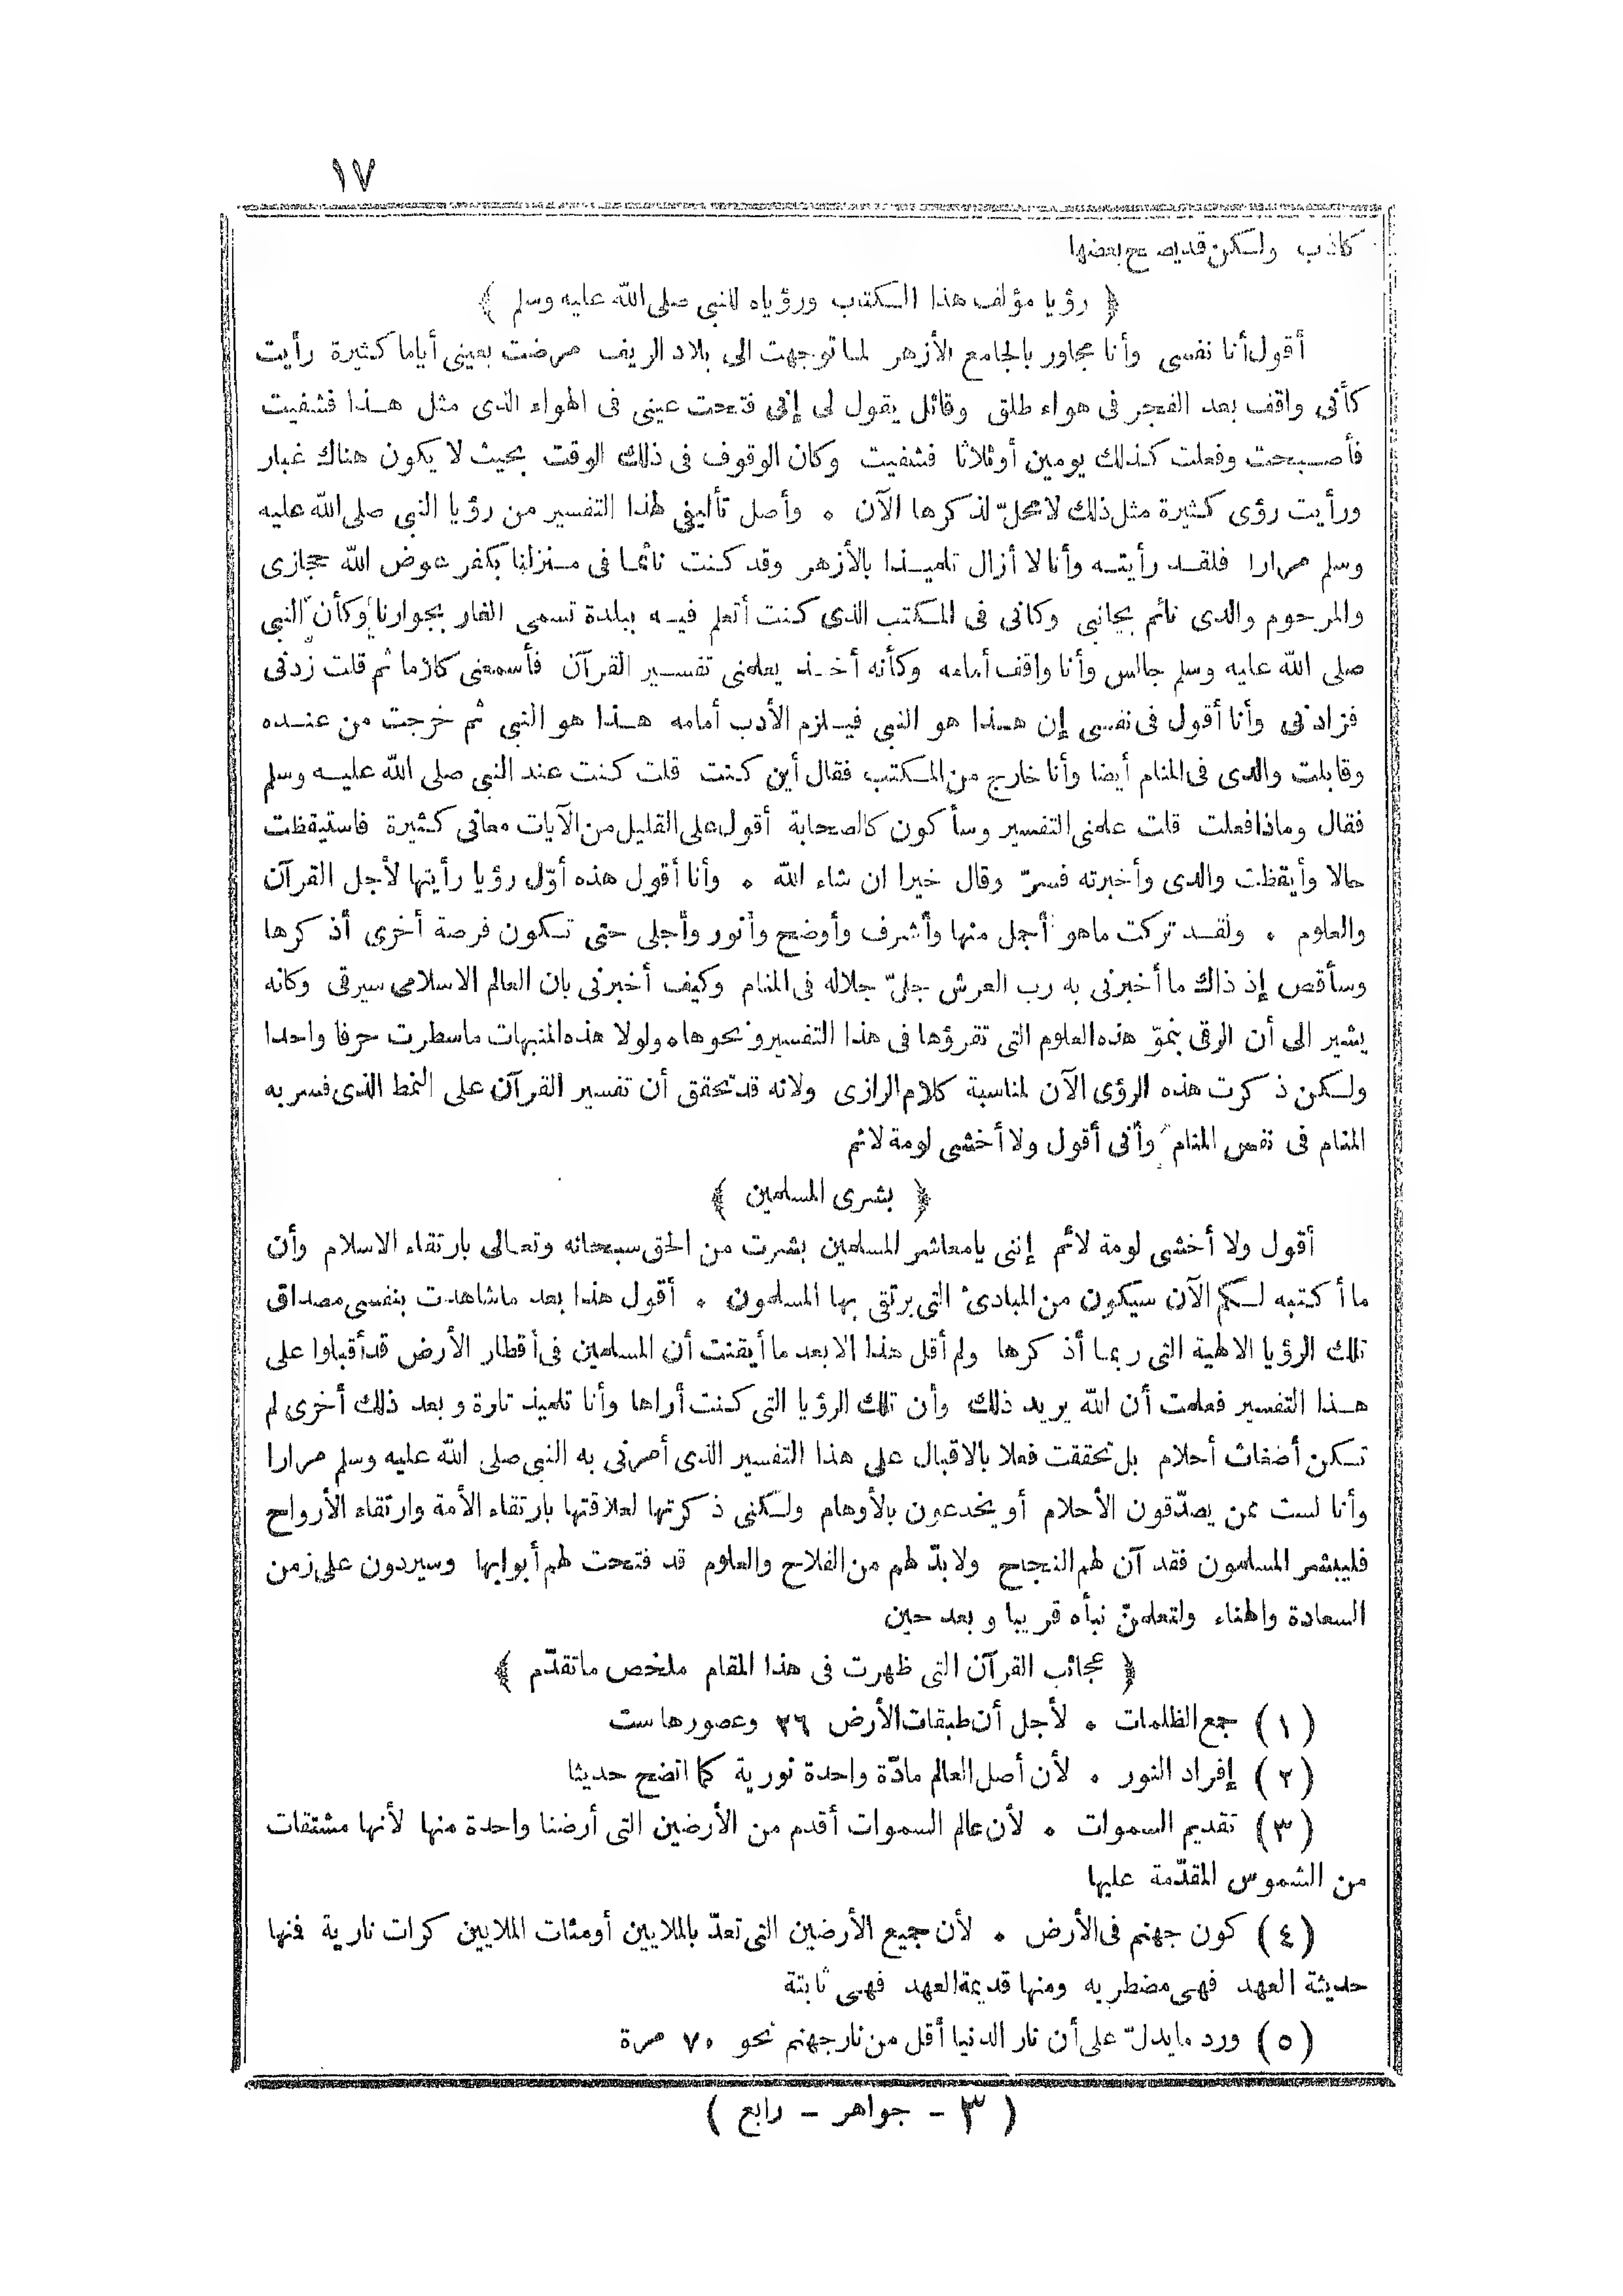 ١٧
كاذب ولكن قد يصح بعضها
﴿ رؤيا مؤلف هذا الكتاب ورؤياه للنبي صلى الله عليه وسلم ﴾
أقول أنا نفسى وأنا مجاور بالجامع الأزهر لما توجهت الى بلاد الريف مرضت بعينى أياما كثيرة رأيت
كأنى واقف بعد الفجر فى هواء طلق وقائل يقول لى إنى فتحت عينى فى الهواء الذى مثل هذا فشفيت
فأصبحت وفعلت كذلك يومين أوثلاثا فشفيت وكان الوقوف فى ذلك الوقت بحيث لا يكون هناك غبار
ورأيت رؤى كثيرة مثل ذلك لا محلّ لذكرها الآن ٠ وأصل تأليفى لهذا التفسير من رؤيا النبي صلى الله عليه
وسلم مرارا فلقد رأيته وأنا لا أزال تلميذا بالأزهر وقد كنت نائما فى منزلنا بكفر عوض الله حجازى
والمرحوم والدى نائم بجانبى وكانى فى المكتب الذى كنت أتعلم فيه ببلدة تسمى الغار بجوارنا وكأن النبي
صلى الله عليه وسلم جالس وأنا واقف أمامه وكأنه أخذ يعلمنى تفسير القرآن فأسمعنى كلاما ثم قلت زدنى
فزادنى وأنا أقول فى نفسى إن هذا هو النبي فيلزم الأدب أمامه هذا هو النبي ثم خرجت من عنده
وقابلت والدى فى المنام أيضا وأنا خارج من المكتب فقال أين كنت قلت كنت عند النبي صلى الله عليه وسلم
فقال وماذا فعلت قلت علمنى التفسير وسأكون كالصحابة أقول على القليل من الآيات معانى كثيرة فاستيقظت
حالا وأيقظت والدى وأخبرته فسرّ وقال خيرا ان شاء الله ٠ وأنا أقول هذه أوّل رؤيا رأيتها لأجل القرآن
والعلوم ٠ ولقد تركت ماهو أجمل منها وأشرف وأوضح وأنور وأجلى حتى تكون فرصة أخرى أذكرها
وسأقص إذ ذاك ما أخبرنى به رب العرش جلّ جلاله فى المنام وكيف أخبرنى بان العالم الاسلامى سيرقى وكانه
يشير الى أن الرقى بنموّ هذه العلوم التى تقرؤها فى هذا التفسير ونحوها ٠ ولولا هذه المنبهات ماسطرت حرفا واحدا
ولكن ذكرت هذه الرؤى الآن لمناسبة كلام الرازى ولانه قد تحقق أن تفسير القرآن على النمط الذى فسر به
المنام فى نفس المنام وأنى أقول ولا أخشى لومة لائم
﴿ بشرى المسلمين ﴾
أقول ولا أخشى لومة لائم إننى يامعاشر المسلمين بشرت من الحق سبحانه وتعالى بارتقاء الاسلام وأن
ما أكتبه لكم الآن سيكون من المبادئ التى يرتقى بها المسلمون ٠ أقول هذا بعد ماشاهدت بنفسى مصداق
تلك الرؤيا الالهية التى ربما أذكرها ولم أقل هذا الا بعد ما أيقنت أن المسلمين فى أقطار الأرض قد أقبلوا على
هذا التفسير فعلمت أن الله يريد ذلك وأن تلك الرؤيا التى كنت أراها وأنا تلميذ تارة وبعد ذلك أخرى لم
تكن أضغاث أحلام بل تحققت فعلا بالاقبال على هذا التفسير الذى أمرنى به النبي صلى الله عليه وسلم مرارا
وأنا لست ممن يصدّقون الأحلام أو يخدعون بالأوهام ولكنى ذكرتها لعلاقتها بارتقاء الأمة وارتقاء الأرواح
فليبشر المسلمون فقد آن لهم النجح ولا بدّ لهم من الفلاح والعلوم قد فتحت لهم أبوابها وسيردون على زمن
السعادة والهناء ولتعلمنّ نبأه قريبا وبعد حين
﴿ عجائب القرآن التى ظهرت فى هذا المقام ملخص ماتقدّم ﴾
(١) جمع الظلمات ٠ لأجل أن طبقات الأرض ٢٦ وعصورها ست
(٢) إفراد النور ٠ لأن أصل العالم مادّة واحدة نورية كما اتضح حديثا
(٣) تقديم السموات ٠ لأن عالم السموات أقدم من الأرضين التى أرضنا واحدة منها لأنها مشتقات
من الشموس المقدّمة عليها
(٤) كون جهنم فى الأرض ٠ لأن جميع الأرضين التى تعدّ بالملايين أومئات الملايين كرات نارية فنها
حديثة العهد فهى مضطربه ومنها قديمة العهد فهى ثابتة
(٥) ورد مايدلّ على أن نار الدنيا أقل من نار جهنم نحو ٧٠ مرة
( ٣ - جواهر - رابع )